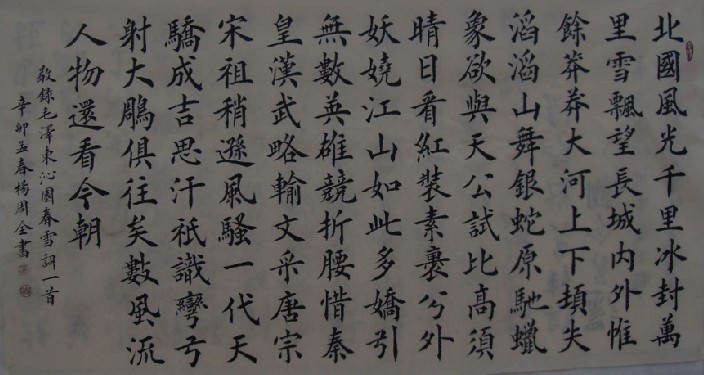 北國風光千里冰封萬
里雪飄望長城內外惟
餘莽莽大河上下頓失
滔滔山舞銀蛇原馳蠟
象欲與天公試比高須
晴日看紅裝素裹分外
妖嬈江山如此多嬌引
無數英雄競折腰惜秦
皇漢武略輸文采唐宗
宋祖稍遜風騷一代天
驕成吉思汗祇識彎弓
射大鵰俱往矣數風流
人物還看今朝
敬錄毛澤東沁園春雪詞一首
辛卯孟春楊周全書